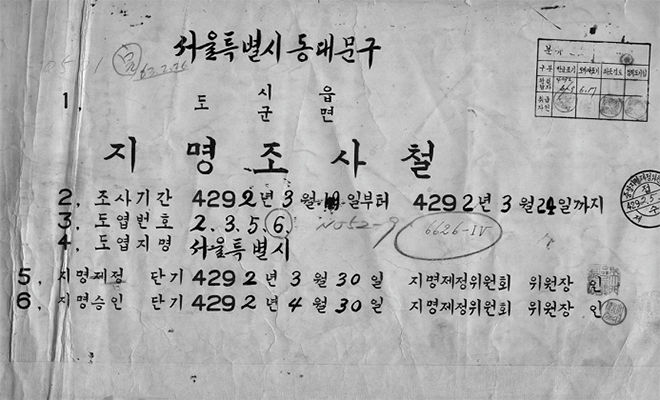 서울특별시 동대문구
1. 도 시 읍
군 면
지 명 조 사 철
2. 조사기간 4292년 3월 일부터 4292년 3월 24일까지
3. 도엽번호 2. 3. 5. 6. NO52-9 6626-IV
4. 도엽지명 서울특별시
5. 지명제정 단기 4292년 3월 30일 지명제정위원회 위원장 인
6. 지명승인 단기 4292년 4월 30일 지명제정위원회 위원장 인